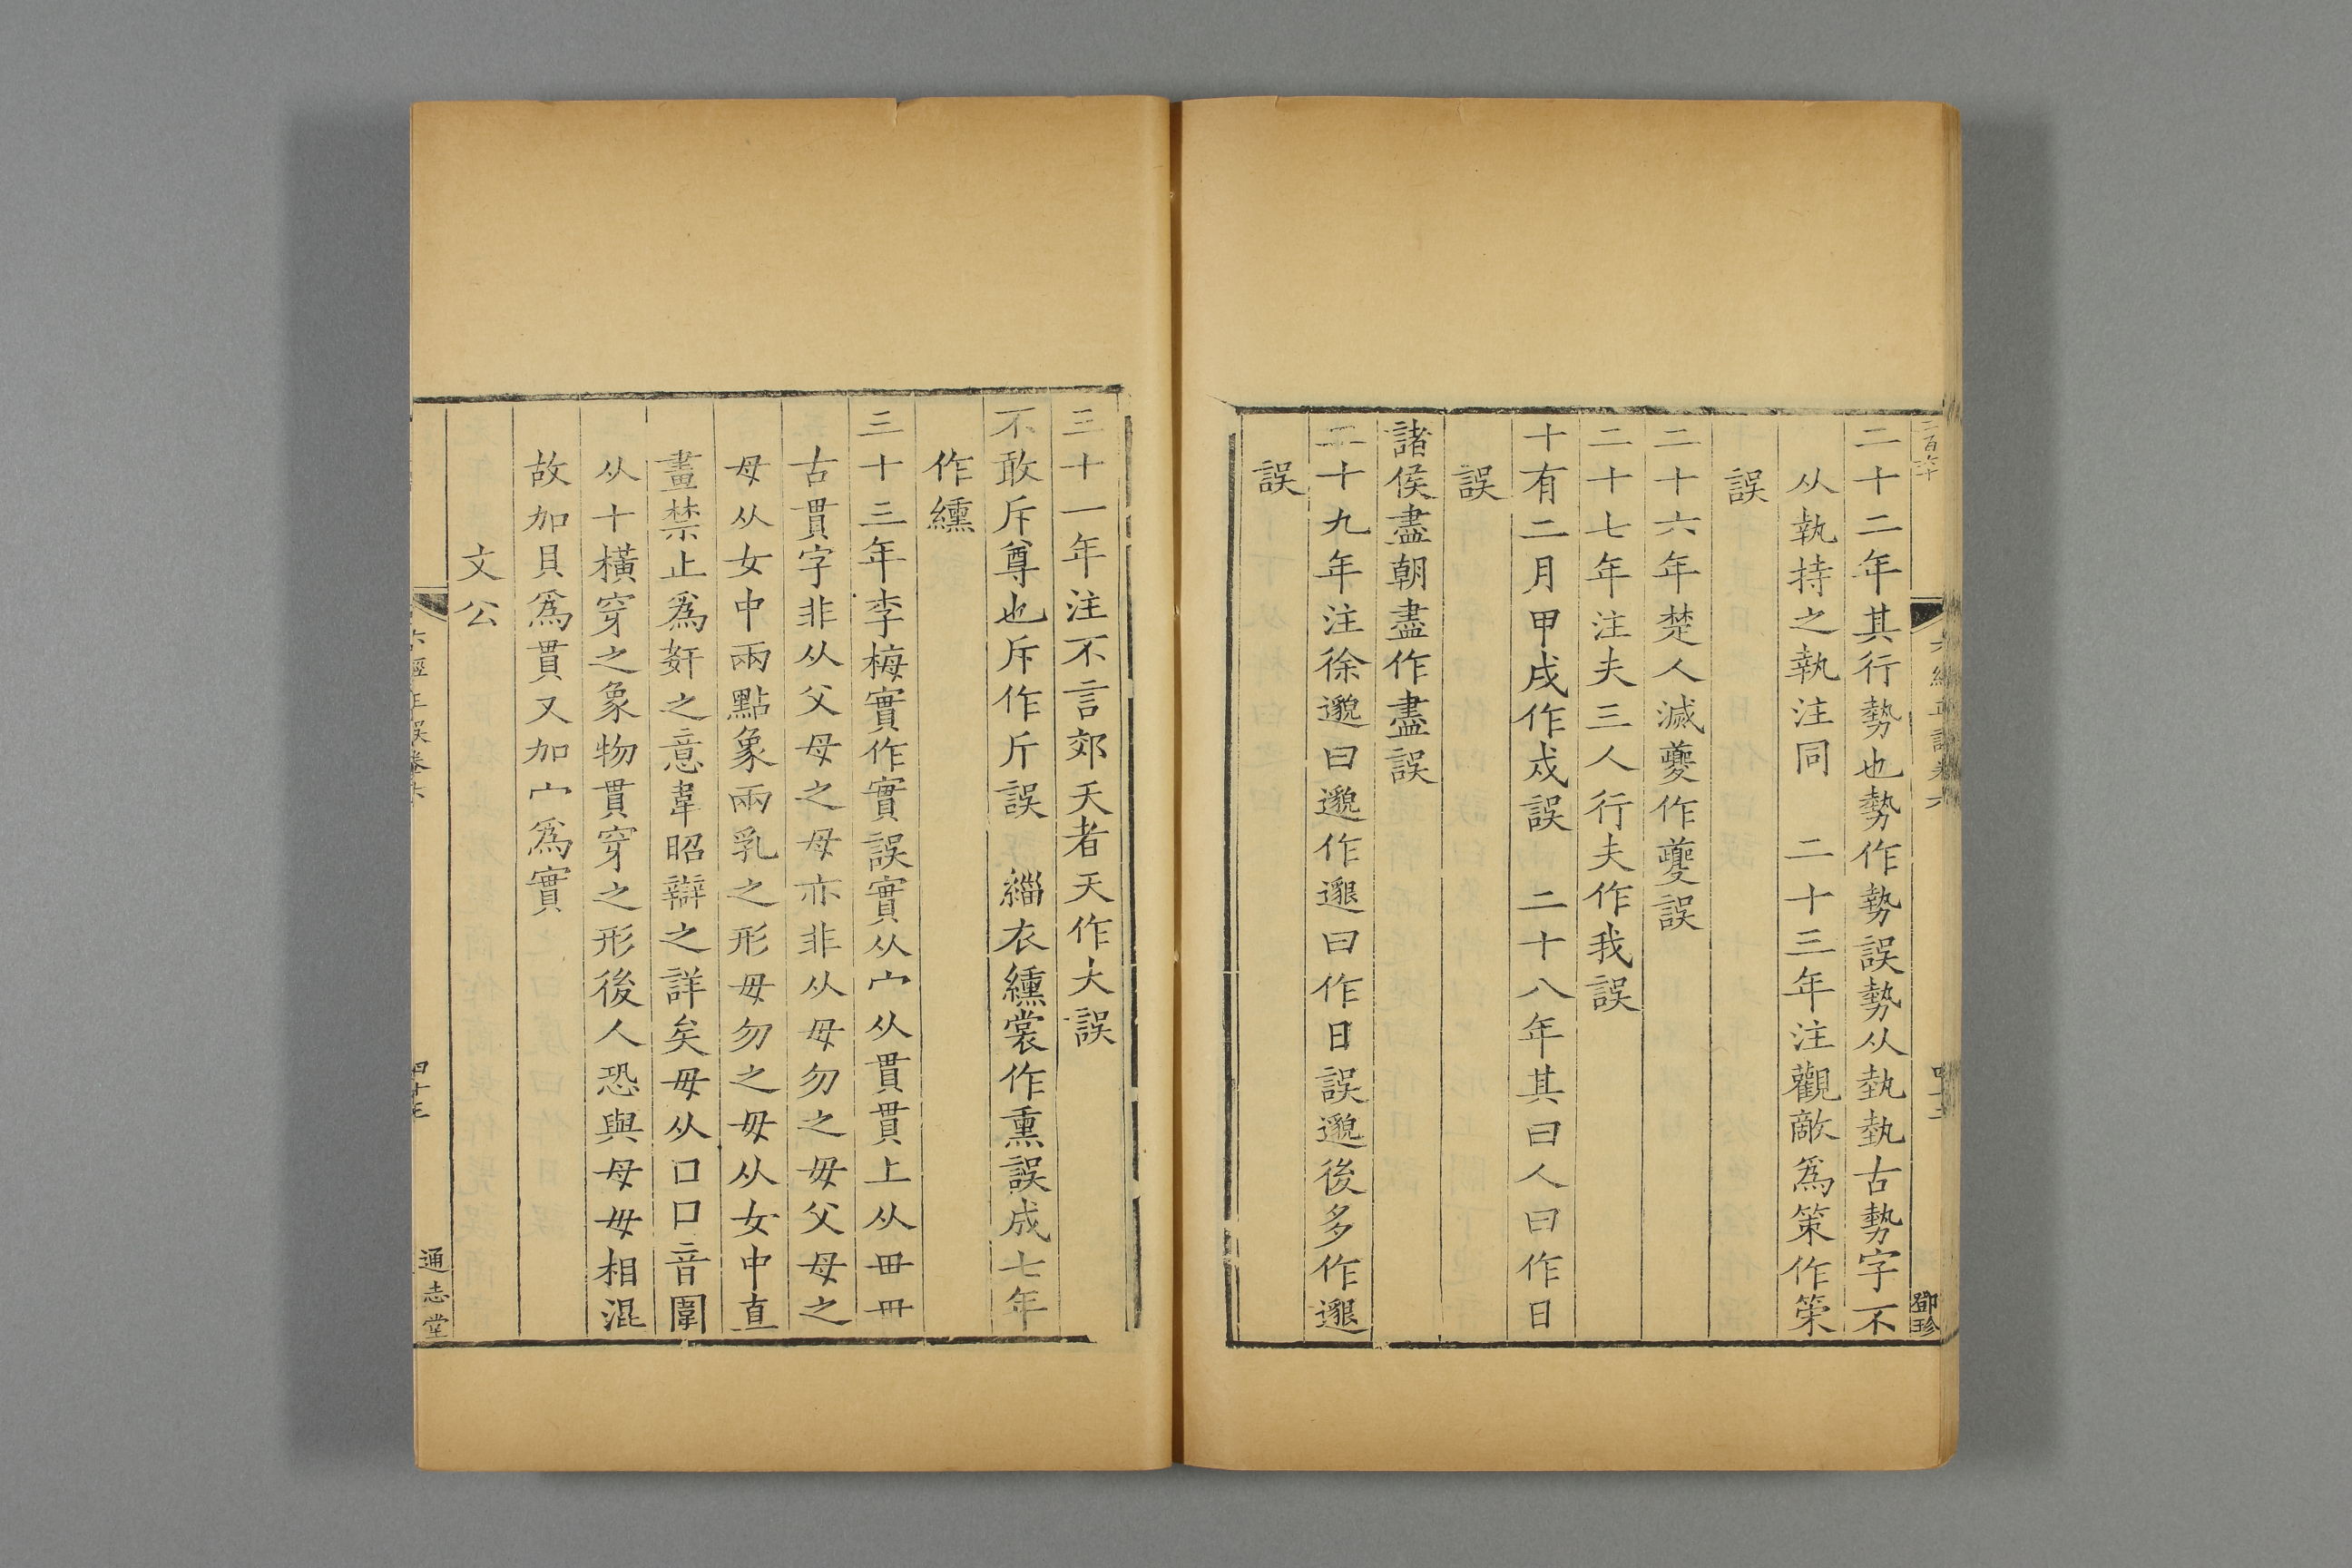 二百六十
六經正誤卷六
鄧珍
二十二年其行勢也勢作勢誤勢从埶埶古勢字不
从執持之執注同　二十三年注觀敵爲策作筞
誤
二十六年楚人滅夔作夔誤
二十七年注夫三人行夫作我誤
十有二月甲戌作戍誤　二十八年其曰人曰作日
誤
諸侯盡朝盡作盡誤
二十九年注徐邈曰邈作邈曰作日誤邈後多作邈
誤
三十一年注不言郊天者天作大誤
不敢斥尊也斥作斤誤　緇衣纁裳作熏誤成七年
作纁
三十三年李梅實作實誤實从宀从貫貫上从毌毌
古貫字非从父母之母亦非从毋勿之毋父母之
母从女中兩點象兩乳之形毋勿之毋从女中直
畫禁止爲姧之意韋昭辯之詳矣毌从口口音圍
从十橫穿之象物貫穿之形後人恐與母毋相混
故加貝爲貫又加宀爲實
文公
六經正誤卷六
四十三
通志堂